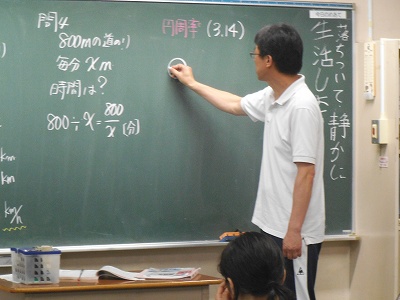 問4
800mの道のり
毎分 xm
時間は?
800÷x=800/x(分)
円周率 (3.14)
落ちついて・静かに
生活し
km
km
km/h